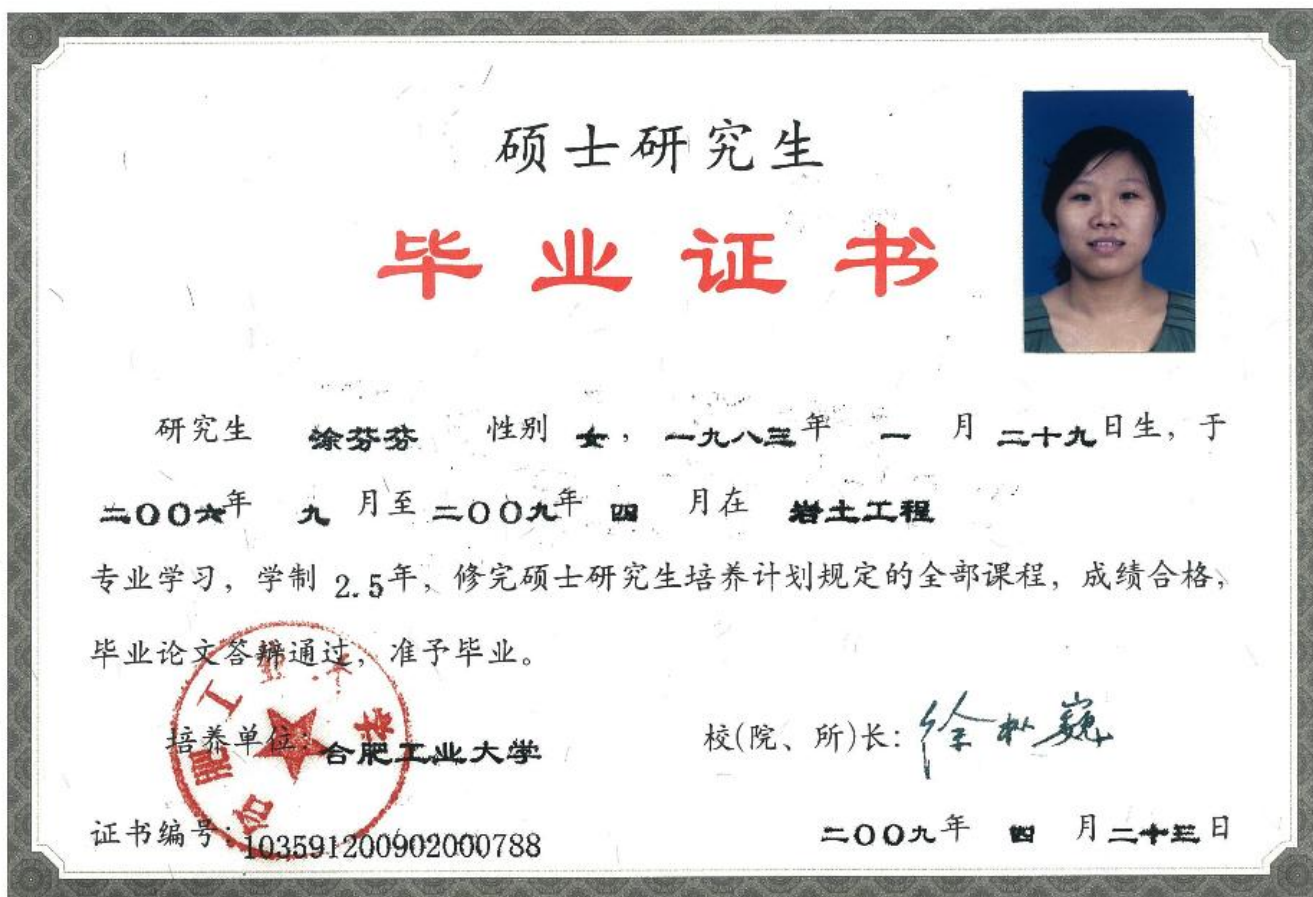 硕士研究生
毕业证书
研究生 涂芬芬 性别 女，一九八三年 一 月 二十九日生，于
二〇〇六年 九 月至 二〇〇九年 四 月在 岩土工程
专业学习，学制 2.5年，修完硕士研究生培养计划规定的全部课程，成绩合格，
毕业论文答辩通过，准予毕业。
培养单位：合肥工业大学
校(院、所)长：徐枞巍
证书编号：103591200902000788
二〇〇九年 四 月二十三日
合肥工业大学